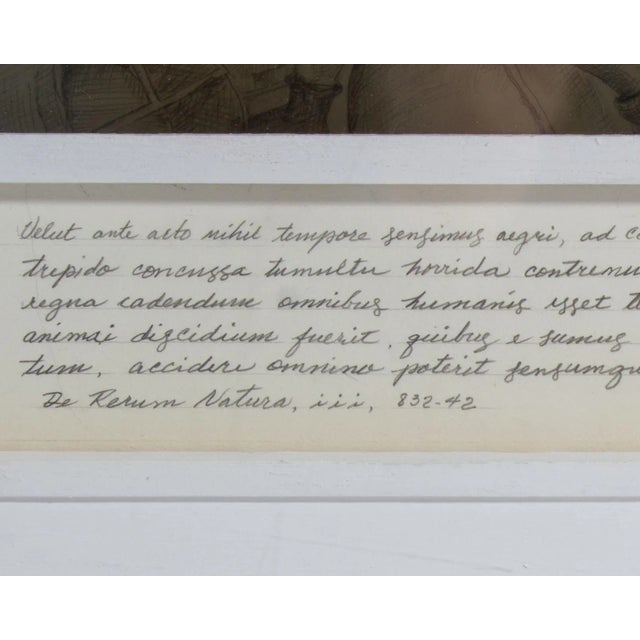 Velut ante acto nihil tempore sensimus aegri, ad
trepido concussa tumultu horrida
regna cadendum omnibus humanis esset
animai discidium fuerit, quibus e sumus
tum, accidere omnino poterit
De Rerum Natura, iii, 832-42